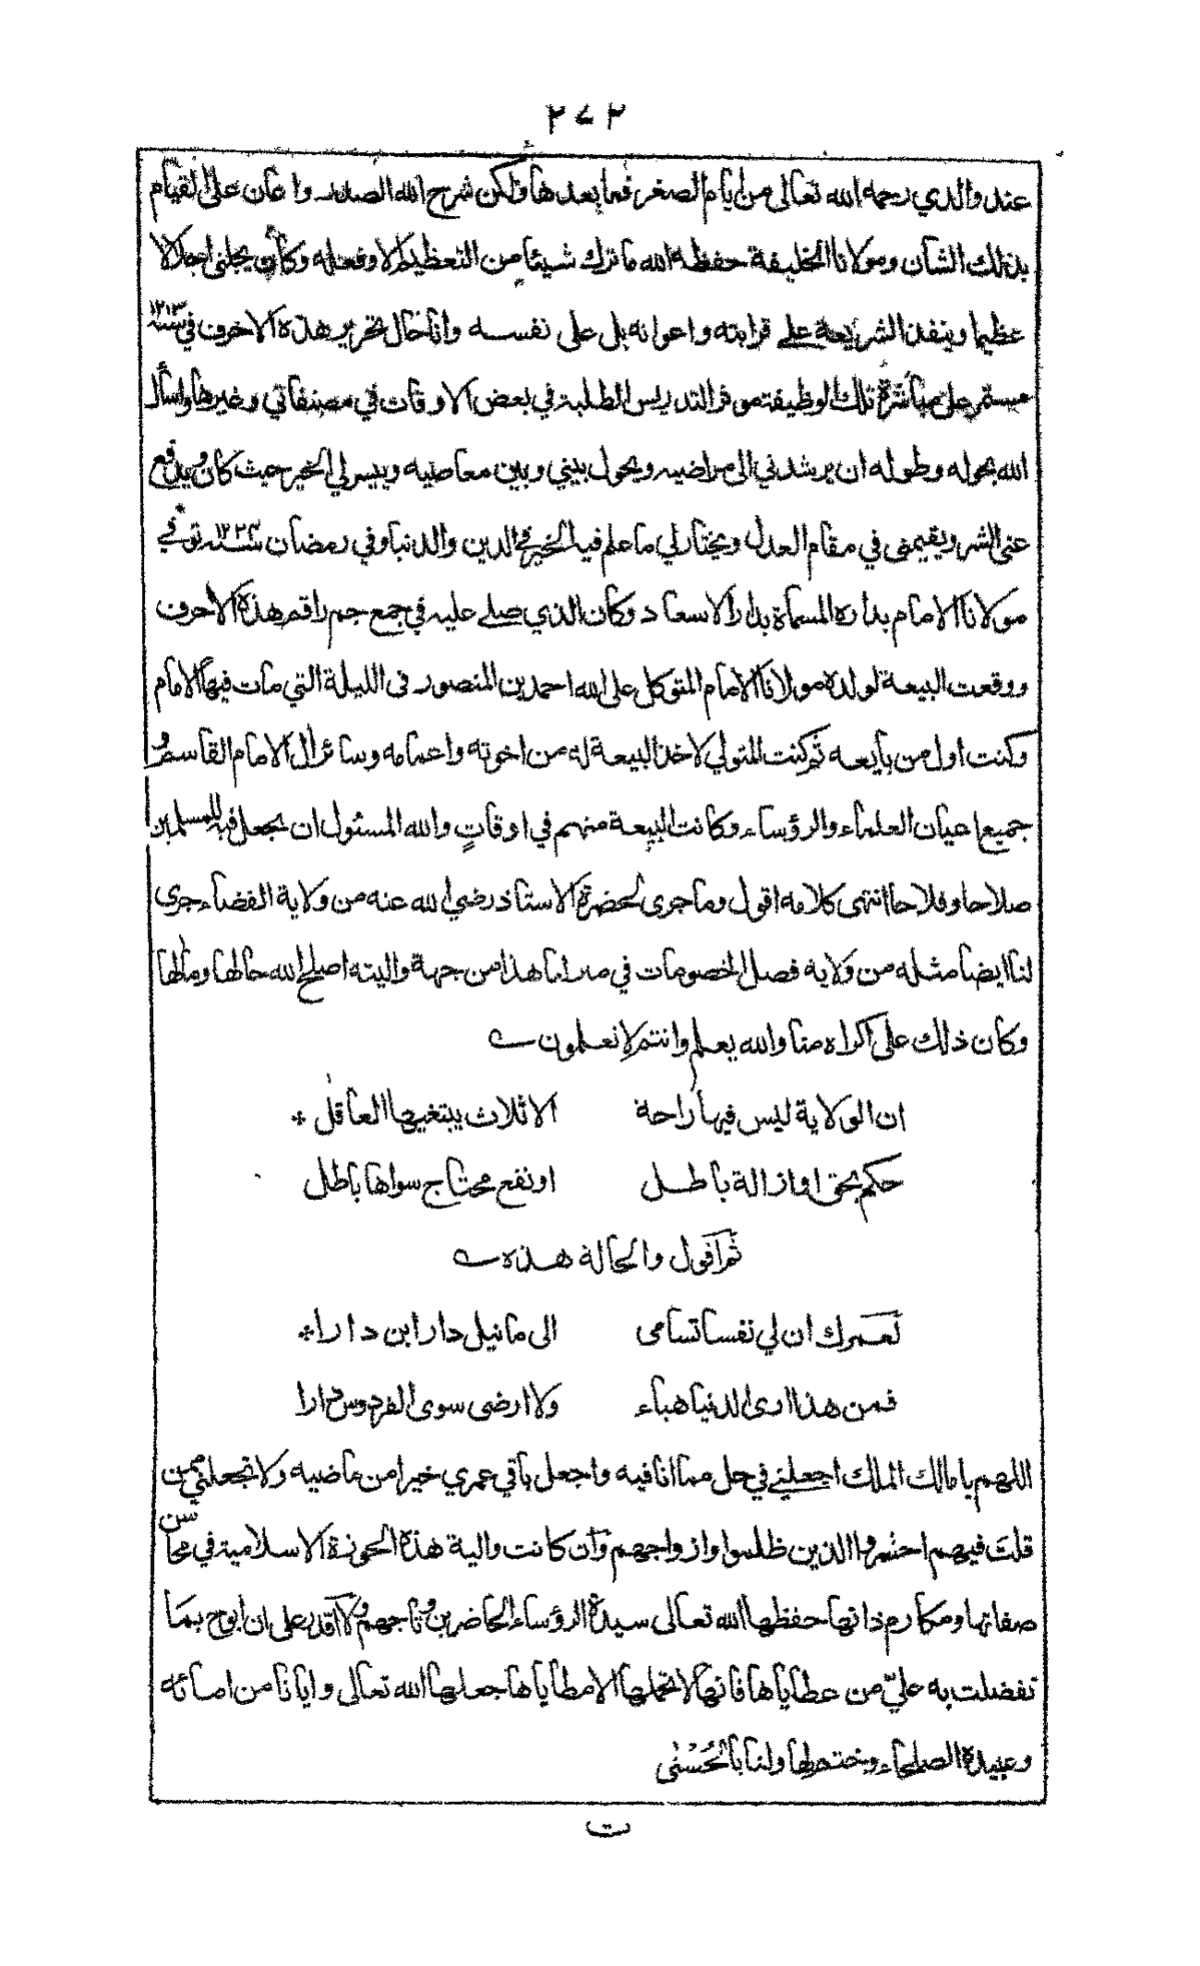 ٢٧٢
عند والدي رحمه الله تعالى من ايام الصغر فما بعدها ولكن شرح الله الصدر واعان على القيام
بذلك الشأن ومولانا الخليفة حفظه الله ما ترك شيئا من التعظيم الا وفعله وكان يجلني اجلالا
عظيما وينفذ الشريعة على قرابته واعوانه بل على نفسه وانا حال تحرير هذه الاحرف في سنة ١٢١٣
مستمر على مباشرة تلك الوظيفة موفر التدريس للطلبة في بعض الاوقات في مصنفاتي وغيرها واسأل
الله بحوله وطوله ان يرشدني الى مراضيه ويحول بيني وبين معاصيه وييسر لي الخير حيث كان ويدفع
عني الشر ويقيمني في مقام العدل ويختار لي ما علم فيه الخير في الدين والدنيا وفي رمضان سنة ١٢٢٤ توفي
مولانا الامام بداره المسماة بدار الاسعاد وكان الذي صلى عليه في جمع جم راقم هذه الاحرف
ووقعت البيعة لولده مولانا الامام المتوكل على الله احمد بن المنصور في الليلة التي مات فيها الامام
وكنت اول من بايعه ثم كنت المتولي لاخذ البيعة له من اخوته واعمامه وسائر ال الامام القاسم و
جميع اعيان العلماء والرؤساء وكانت البيعة منهم في اوقات والله المسئول ان يجعل فيه للمسلمين
صلاحا وفلاحا انتهى كلامه اقول وما جرى لحضرة الاستاذ رضي الله عنه من ولاية القضاء جرى
لنا ايضا مثله من ولاية فصل الخصومات في مدراما هذا من جهة واليته اصلح الله حالها ومآلها
وكان ذلك على اكراه منا والله يعلم وانتم لا تعلمون
ان الولاية ليس فيها راحة الا ثلاث يبتغيها العاقل *
حكم بحق او ازالة باطل او نفع محتاج سواها باطل
ثم اقول والحالة هذه
لعمرك ان لي نفسا تسامى الى ما نيل دار ابن دارا *
فمن هذا ارى الدنيا هباء ولا ارضى سوى الفردوس دارا
اللهم يا مالك الملك اجعلني في حل مما انا فيه واجعل باقي عمري خيرا من ماضيه ولا تجعلني ممن
قلت فيهم احشروا الذين ظلموا وازواجهم وان كانت والية هذه الحوزة الاسلامية في محاسن
صفاتها ومكارم ذاتها حفظها الله تعالى سيدة الرؤساء الحاضرين وتاجهم ولا اقدر على ان ابوح بما
تفضلت به عليّ من عطاياها فانها لا تحملها الا مطاياها جعلها الله تعالى وايانا من امائه
وعبيده الصلحاء وختم لها ولنا بالحُسْنٰى
ت